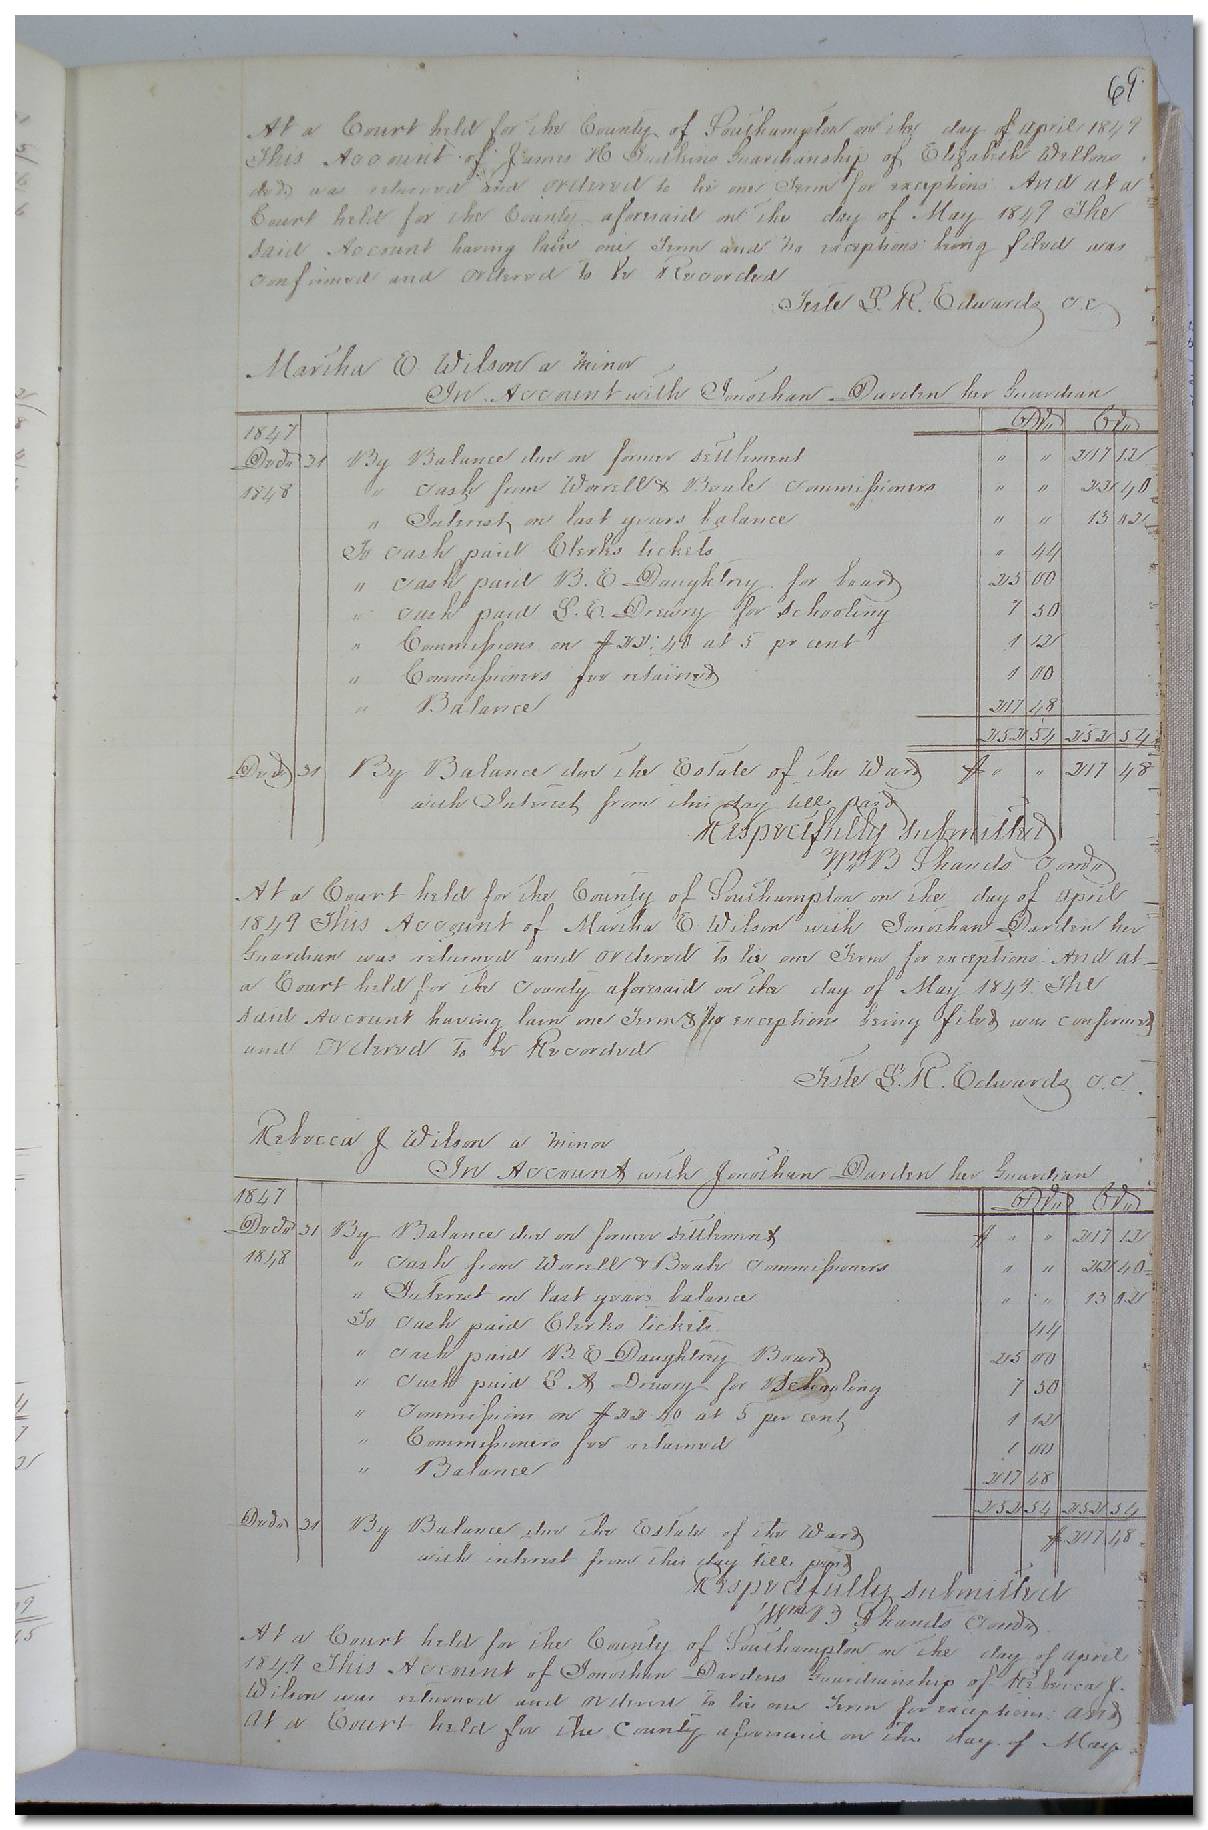 69
At a Court held for the County of Southampton on the day of April 1849
This Account of James H Guardianship of Elizabeth Wellons
decd was returned and ordered to lie one Term for exceptions And at a
Court held for the County aforesaid on the day of May 1849 The
said Account having lain one Term and no exceptions being filed was
confirmed and ordered to be Recorded
Teste L. R. Edwards C. C.
Martha E. Wilson a minor
In Account with Jonathan Darden her Guardian
Drs Crs
1847
Decr 31 By Balance due on former settlement " " 217 12
1848 " Cash from Worrell & Beale Commissioners " " 22 40
" Interest on last years balance " " 13 02
To Cash paid Clerks tickets " 44
" Cash paid B. E Daughtrey for board 25 00
" Cash paid S. E. Drewry for schooling 7 50
" Commissions on $22:40 at 5 pr cent 1 12
" Commissioners fee retained 1 00
" Balance 217 48
252 54 252 54
Decr 31 By Balance due the Estate of the Ward $ " " 217 48
with Interest from this day till paid
Respectfully submitted
Wm B Shands Comr
At a Court held for the County of Southampton on the day of April
1849 This Account of Martha E. Wilson with Jonathan Darden her
Guardian was returned and ordered to lie one Term for exceptions And at
a Court held for the County aforesaid on the day of May 1849. The
said Account having lain one Term & no exceptions being filed was confirmed
and ordered to be Recorded
Teste L. R. Edwards C. C.
Rebecca J Wilson a minor
In Account with Jonathan Darden her Guardian
Drs Crs
1847
Decr 31 By Balance due on former settlement $ " " 217 12
1848 " Cash from Worrell & Beale Commissioners " " 22 40
" Interest on last years balance " " 13 02
To Cash paid Clerks tickets 44
" Cash paid B. E Daughtrey Board 25 00
" Cash paid Drewry for Schooling 7 50
" Commissions on $22 40 at 5 per cent 1 12
" Commissioners fee returned 1 00
" Balance 217 48
252 54 252 54
Decr 31 By Balance due the Estate of the Ward $ 217 48
with interest from this day till paid
Respectfully submitted
Wm B Shands Comr
At a Court held for the County of Southampton on the day of April
1849 This Account of Jonathan Dardens Guardianship of Rebecca J.
Wilson was returned and ordered to lie one Term for exceptions: And
At a Court held for the County aforesaid on the day of May